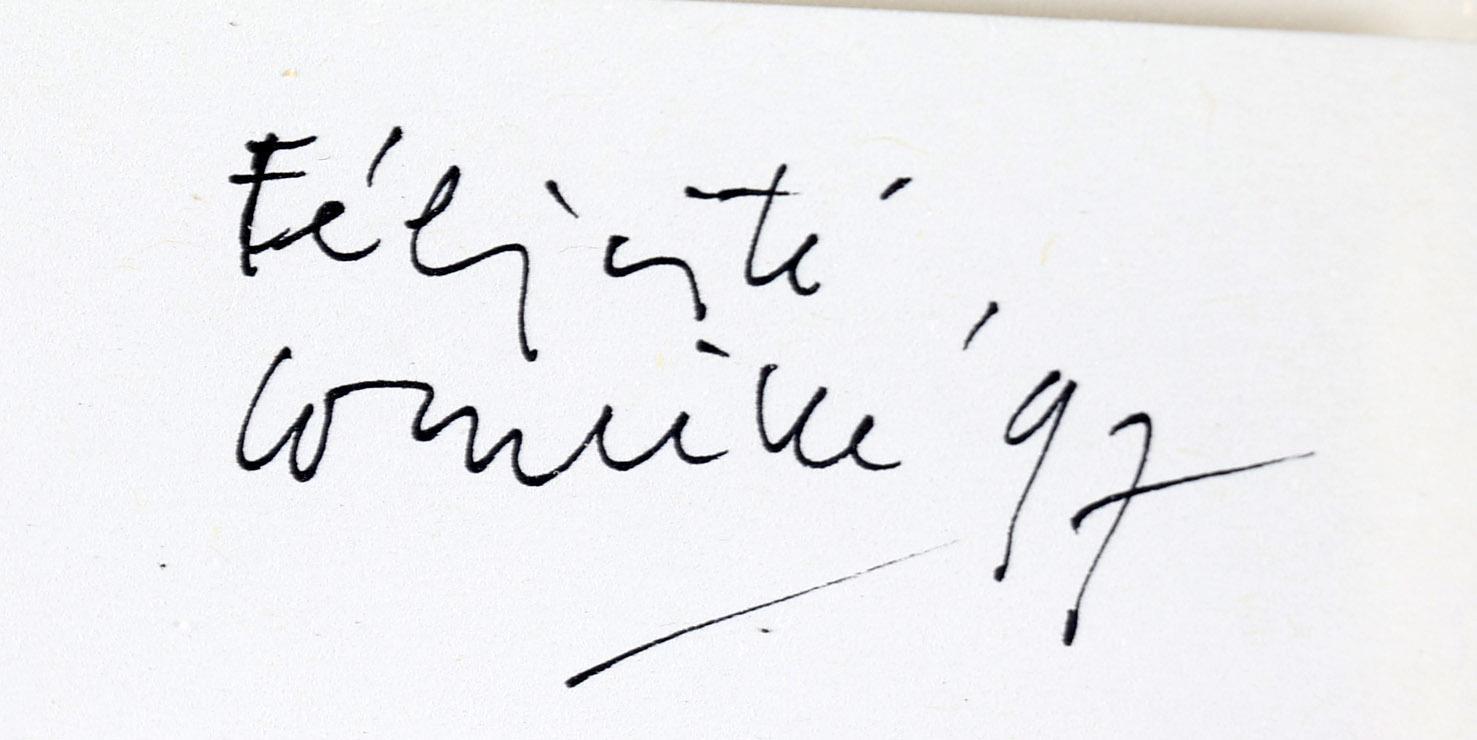 Félicité
Corneille '97